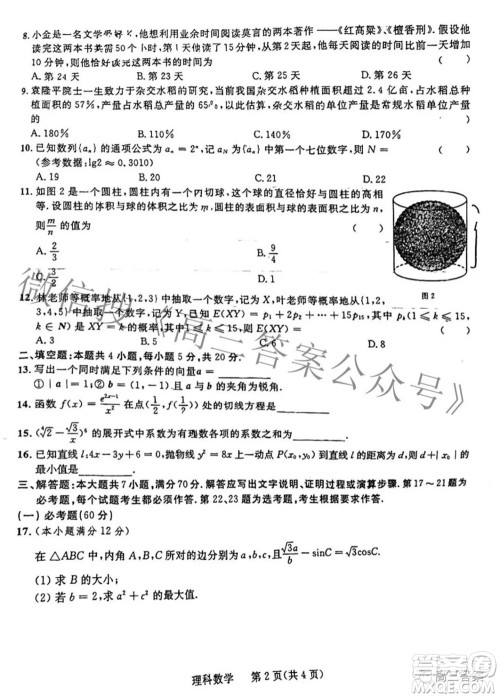 8. 小金是一名文学爱好者,他想利用业余时间阅读莫言的两本著作——《红高粱》、《檀香刑》. 假设他
读完这两本书共需50个小时,第1天他读了15分钟,从第2天起,他每天阅读的时间比前一天增加
10分钟,则他恰好读完这两本书的时间为 ( )
A. 第24天 B. 第23天 C. 第22天 D. 第21天
9. 袁隆平院士一生致力于杂交水稻的研究,当前我国杂交水稻种植面积超过2.4亿亩,占水稻总种
植面积的57%,产量占水稻总产量的65%,则杂交水稻的单位产量是常规水稻的单位产量
的 ( )
A. 180% B. 160% C. 140% D. 120%
10. 已知数列{aₙ}的通项公式为 aₙ=2ⁿ,记 a_N 为{aₙ}中第一个七位数字,则 N= ( )
(参考数据:lg2≈0.3010)
A. 22 B. 21 C. 20 D. 19
11. 如图2是一个圆柱,圆柱内有一内切球,这个球的直径恰好与圆柱的高相
等. 设圆柱的体积与球的体积之比为m,圆柱的表面积与球的表面积之比
为n,则 m/n 的值为 ( )
A. 2/3 B. 9/4
C. 3/2 D. 1
图2
12. 林老师等概率地从{1,2,3}中抽取一个数字,记为X,叶老师等概率地从{1,2,3,4,5}中抽取一个
数字,记为Y,已知E(XY)= ,其中 是XY=k的概率(1≤k≤15,
k∈N),则E(XY)= ( )
A. 3 B. 5 C. 6 D. 8
二、填空题:本题共4小题,每小题5分,共20分.
13. 写出一个同时满足下列条件的向量a=
①|a|=√2;②向量a与b=(1,-1)的夹角为锐角.
14. 函数 f(x)= 在点(1/2,f(1/2))处的切线方程为
15. 的展开式中系数为有理数各项的系数之和为
16. 已知直线 l:4x-3y+6=0,抛物线 y²=8x 上一动点P(x₀,y₀)到直线l的距离为d,则d+|x₀|
的最小值是
三、解答题:本大题共7小题,满分70分. 解答应写出文字说明、证明过程或演算步骤. 第17~21题为
必考题,每个试题考生都必须作答. 第22、23题为选考题,考生根据要求作答.
(一)必考题(60分)
17. (本小题满分12分)
在△ABC中,内角A,B,C所对的边分别为a,b,c,且 √3a/b -sinC=√3cosC.
(1)求B的大小;
(2)若b= ,求a²+c²的最大值.
理科数学 第2页(共4页)
微信搜《高三答案公众号》
高三答案